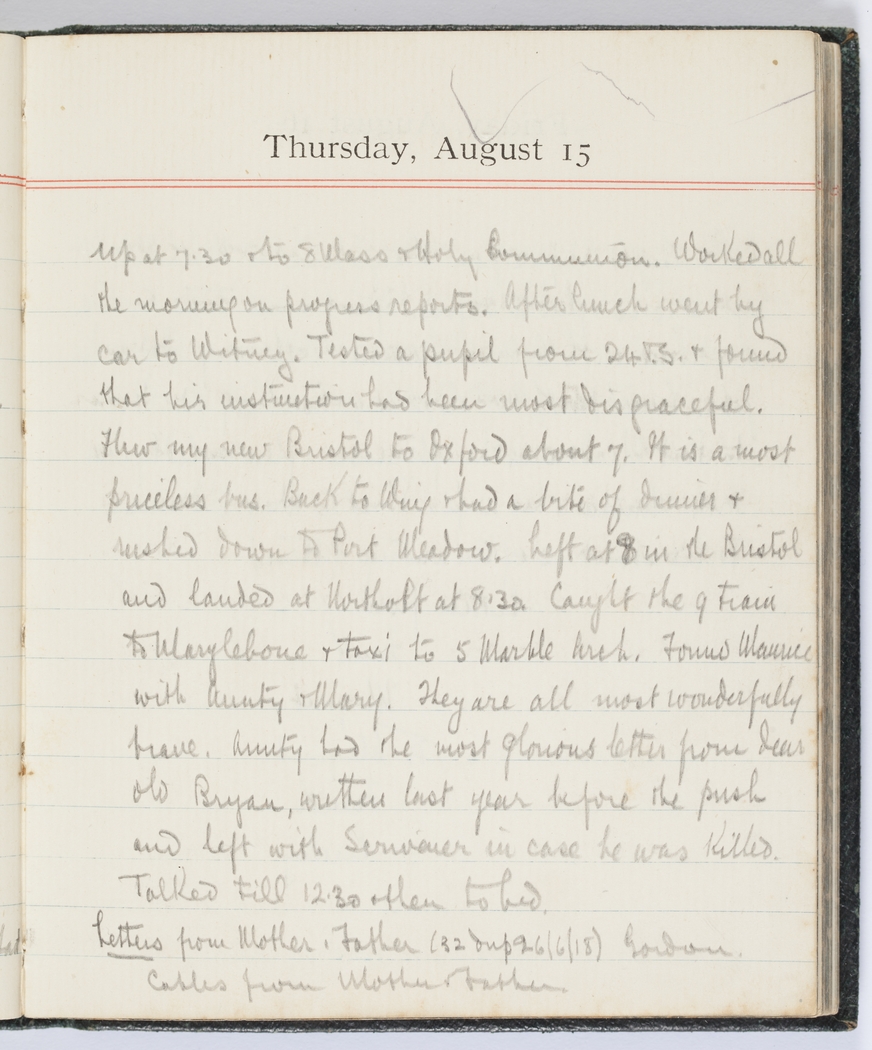 Thursday, August 15
Up at 7.30 & to 8 Mass & Holy Communion. Worked all
the morning on progress reports. After lunch went by
car to Witney. Tested a pupil from 24 T.S. & found
that his instruction had been most disgraceful.
Flew my new Bristol to Oxford about 7. It is a most
priceless bus. Back to Wing & had a bite of dinner &
rushed down to Port Meadow. Left at 8 in the Bristol
and landed at Northolt at 8.30. Caught the 9 train
to Marylebone & taxi to 5 Marble Arch. Found Maurice
with Aunty & Mary. They are all most wonderfully
brave. Aunty had the most glorious letter from dear
old Bryan, written last year before the push
and left with Scrivener in case he was killed.
Talked till 12.30 & then to bed.
Letters from Mother & Father (32 26/6/18) Gordon.
Cables from Mother & Father